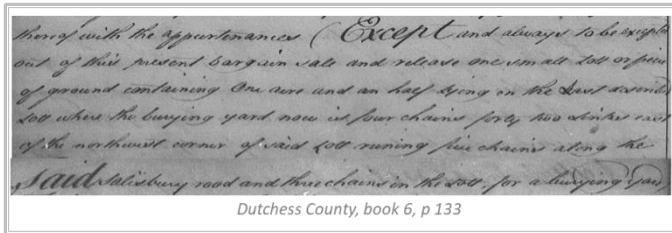 thereof with the appurtenances (Except and always to be excepted
out of this present bargain sale and release one small Lott or piece
of ground containing One acre and an half lying in the Last described
Lott where the burying yard now is four chains forty two Links east
of the northwest corner of said Lott runing five chains along the
Said Salisbury road and three chains in the Lott for a burying yard
Dutchess County, book 6, p 133